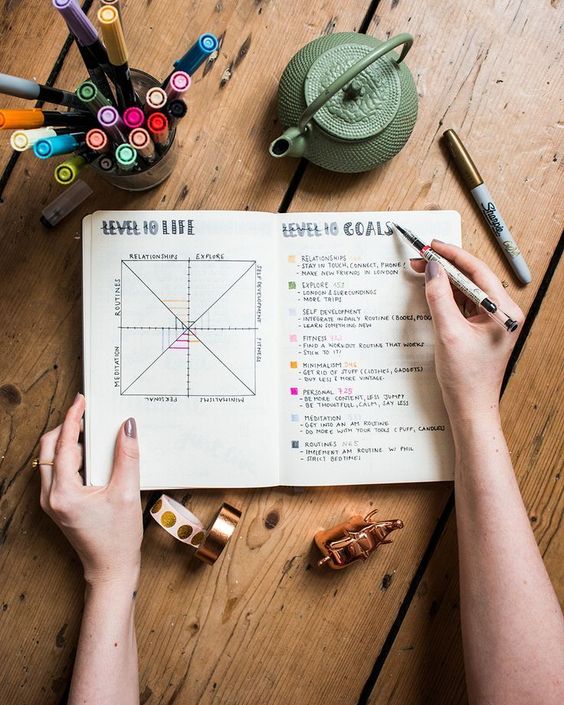 LEVEL 10 LIFE
RELATIONSHIPS EXPLORE
SELF DEVELOPMENT
FITNESS
MINIMALISMS
PERSONAL
MEDITATION
ROUTINES
LEVEL 10 GOALS
RELATIONSHIPS
- STAY IN TOUCH, CONNECT, PHONE!
- MAKE NEW FRIENDS IN LONDON
EXPLORE
- LONDON & SURROUNDINGS
- MORE TRIPS
SELF DEVELOPMENT
- INTEGRATE IN DAILY ROUTINE (BOOKS,
- LEARN SOMETHING NEW
FITNESS
- FIND A WORKOUT ROUTINE THAT WORKS
- STICK TO IT!
MINIMALISM
- GET RID OF STUFF (CLOTHES, GADGETS)
- BUY LESS & MORE VINTAGE
PERSONAL 725
- BE MORE CONTENT, LESS JUMPY
- BE THOUGHTFULL, CALM, SAY LESS
MEDITATION
- GET INTO AN AM ROUTINE
- DO MORE WITH YOUR TOOLS (PUFF, CANDLES)
ROUTINES N65
- IMPLEMENT AM ROUTINE W/ PHIL
- STRICT BEDTIMES
Sharpie